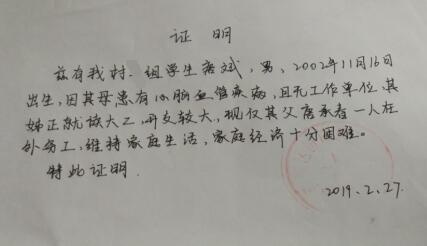 证 明
兹有我村一组学生唐斌，男，2002年11月16日
出生，因其母患有心脑血管疾病，且无工作单位，其
姊正就读大二，开支较大，现仅其父唐承春一人在
外务工，维持家庭生活，家庭经济十分困难。
特此证明．
2019.2.27.